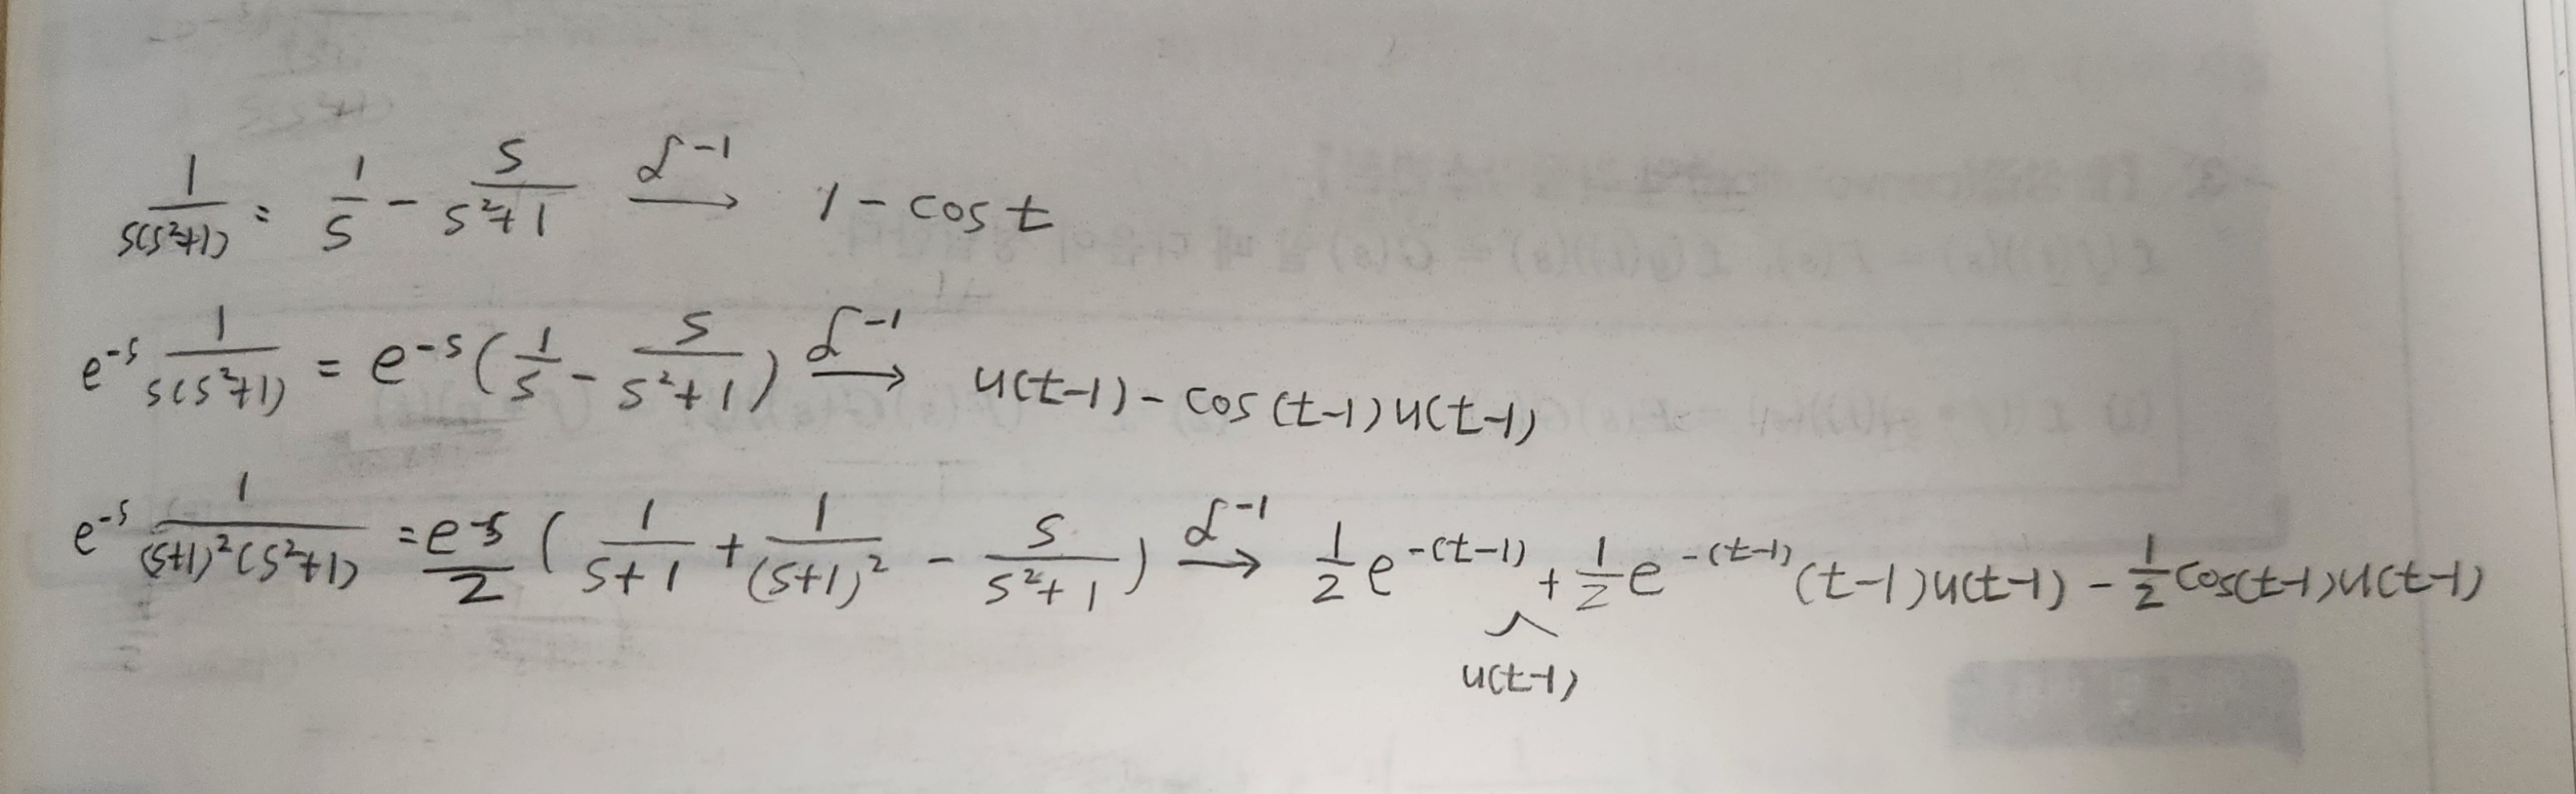 1/(s(s²+1)) = 1/s - s/(s²+1) ℒ⁻¹→ 1 - cos t
e^{-s} 1/(s(s²+1)) = e^{-s} (1/s - s/(s²+1)) ℒ⁻¹→ u(t-1) - cos(t-1)u(t-1)
e^{-s} 1/((s+1)²(s²+1)) = e^{-s}/2 (1/(s+1) + 1/(s+1)² - s/(s²+1)) ℒ⁻¹→ 1/2 e^{-(t-1)} + 1/2 e^{-(t-1)} (t-1)u(t-1) - 1/2 cos(t-1)u(t-1)
u(t-1)